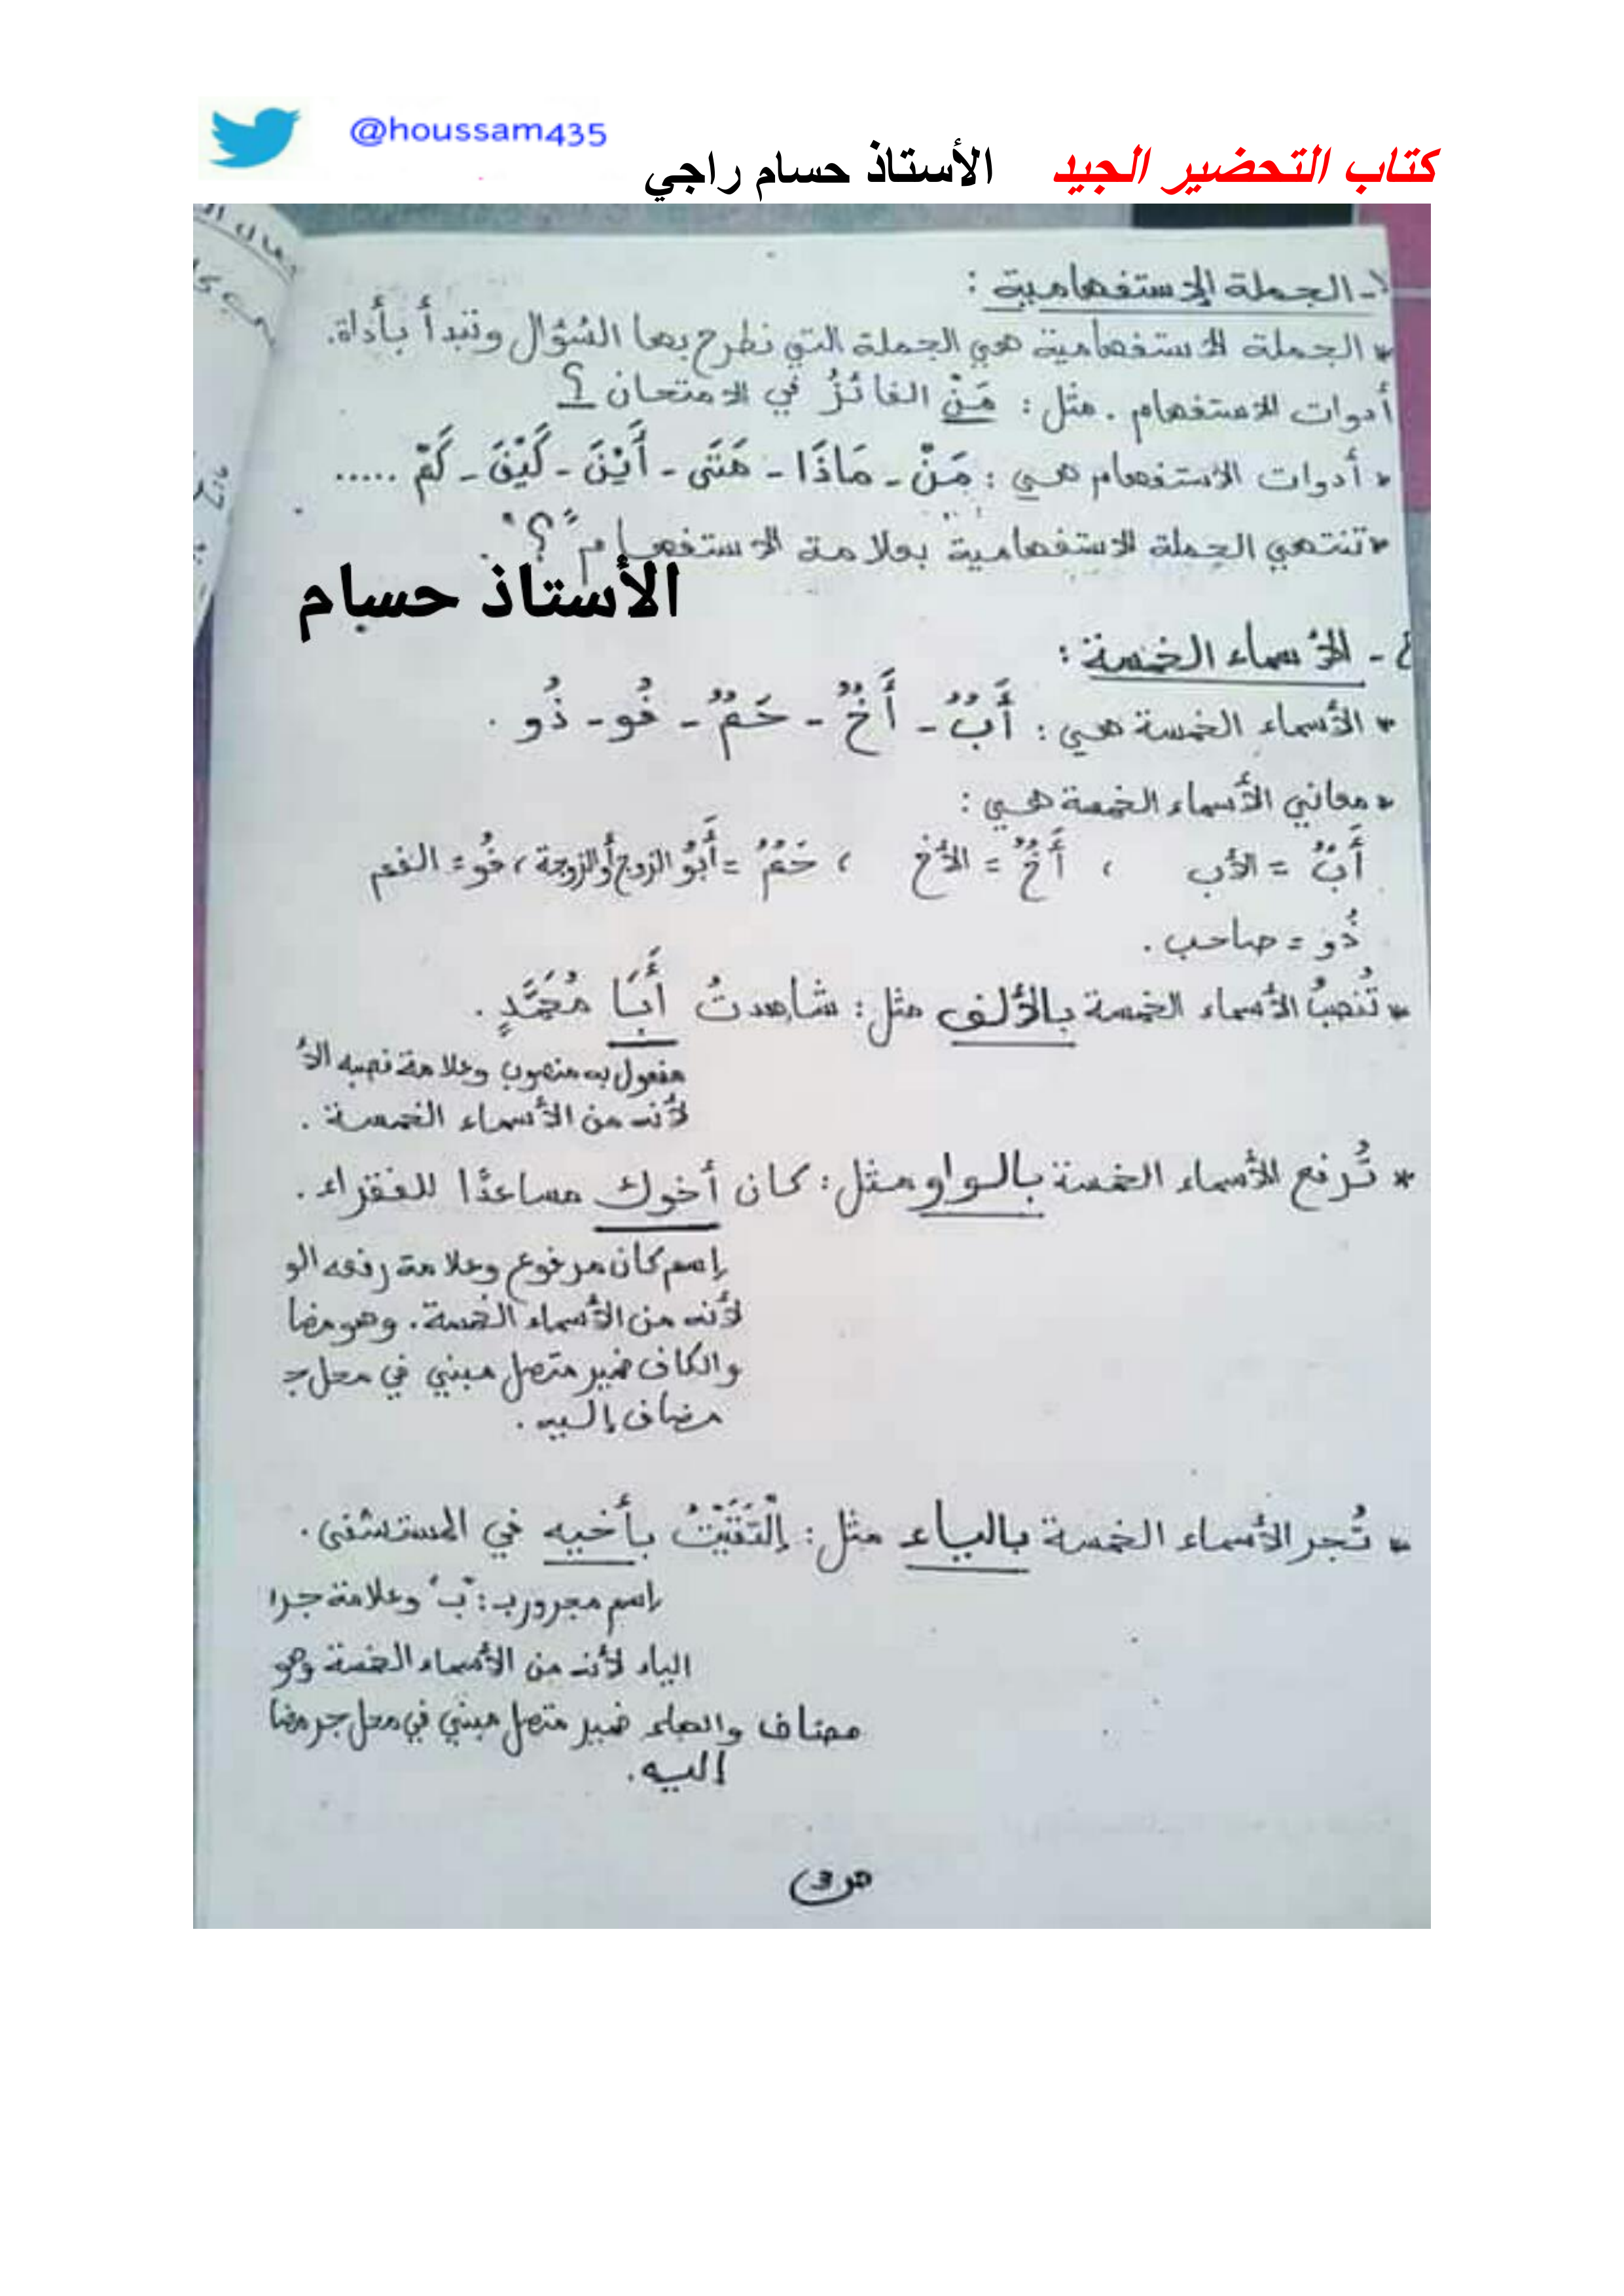 @houssam435
كتاب التحضير الجيد الأستاذ حسام راجي
- الجملة الإستفهامية :
* الجملة الاستفهامية هي الجملة التي نطرح بها السُّؤال وتبدأ بأداة.
أدوات الاستفهام . مثل : مَنْ الفائزُ في الامتحان ؟
* أدوات الاستفهام هي : مَنْ - مَاذَا - مَتَى - أَيْنَ - كَيْفَ - كَمْ .....
* تنتهي الجملة الاستفهامية بعلامة الاستفهام "؟" .
الأستاذ حسام
- الأسماء الخمسة :
* الأسماء الخمسة هي : أَبٌ - أَخٌ - حَمٌ - فُو - ذُو .
* معاني الأسماء الخمسة هي :
أَبٌ = الأب ، أَخٌ = الأخ ، حَمٌ = أَبُو الزوج أو الزوجة ، فُو = الفم
ذُو = صاحب .
* تُنصبُ الأسماء الخمسة بالألف مثل : شاهدتُ أَبَا مُحَمَّدٍ .
مفعول به منصوب وعلامة نصبه الأ
لأنه من الأسماء الخمسة .
* تُرفع الأسماء الخمسة بالواو مثل : كان أخوك مساعدًا للفقراء .
إسم كان مرفوع وعلامة رفعه الو
لأنه من الأسماء الخمسة . وهو مضا
والكاف ضمير متصل مبني في محل جـ
مضاف إليه .
* تُجر الأسماء الخمسة بالياء مثل : إلْتَقَيْتُ بأخيه في المستشفى .
إسم مجرور بـ : "ب" وعلامة جرا
الياء لأنه من الأسماء الخمسة وهو
مضاف والهاء ضمير متصل مبني في محل جر مضا
إليه .
ص3